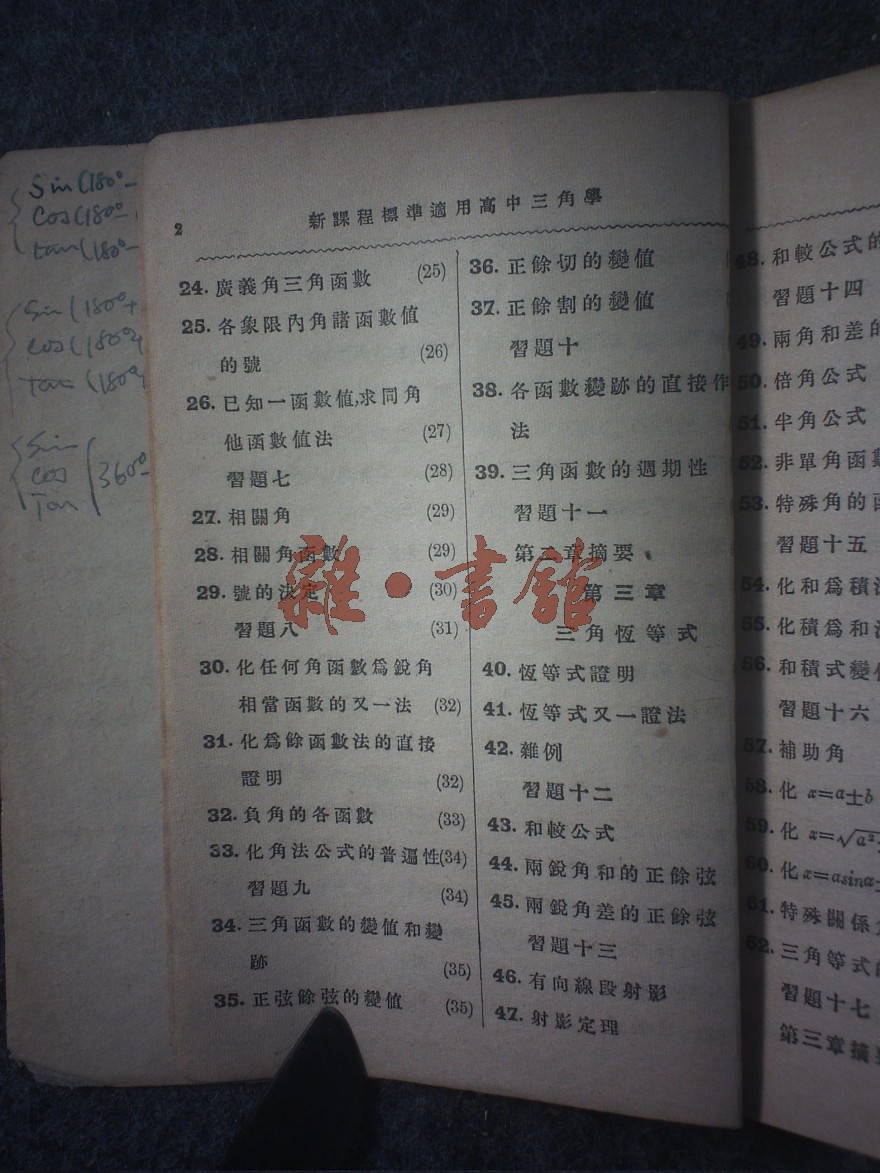 Sin(180°-
Cos(180°-
tan(180°-
Sin(180°+
Cos(180°+
Tan(180°+
Sin
Cos
Tan
(360°-
2
新課程標準適用高中三角學
24. 廣義角三角函數 (25)
25. 各象限內角諸函數值
的號 (26)
26. 已知一函數值,求同角
他函數值法 (27)
習題七 (28)
27. 相關角 (29)
28. 相關角函數 (29)
29. 號的決定 (30)
習題八 (31)
30. 化任何角函數爲銳角
相當函數的又一法 (32)
31. 化爲餘函數法的直接
證明 (32)
32. 負角的各函數 (33)
33. 化角法公式的普遍性(34)
習題九 (34)
34. 三角函數的變值和變
跡 (35)
35. 正弦餘弦的變值 (35)
36. 正餘切的變值
37. 正餘割的變值
習題十
38. 各函數變跡的直接作
法
39. 三角函數的週期性
習題十一
第二章摘要
第三章
三角恆等式
40. 恆等式證明
41. 恆等式又一證法
42. 雜例
習題十二
43. 和較公式
44. 兩銳角和的正餘弦
45. 兩銳角差的正餘弦
習題十三
46. 有向線段射影
47. 射影定理
48. 和較公式的
習題十四
49. 兩角和差的
50. 倍角公式
51. 半角公式
52. 非單角函數
53. 特殊角的函
習題十五
54. 化和爲積
55. 化積爲和
56. 和積式變
習題十六
57. 補助角
58. 化 x=a±b
59. 化 x=√a²
60. 化x=asinα
61. 特殊關係
62. 三角等式的
習題十七
第三章摘
雜·書館